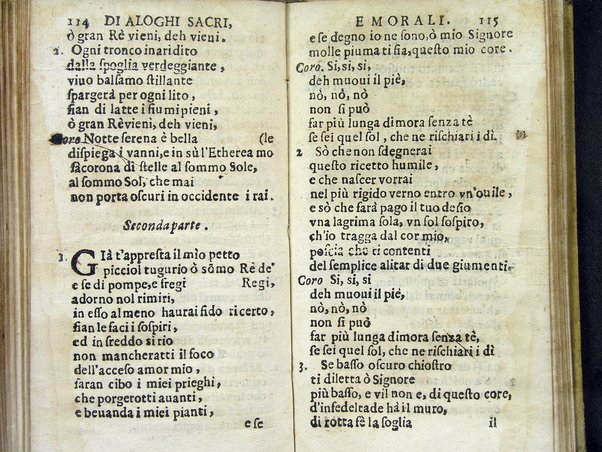 114 DI ALOGHI SACRI,
ò gran Rè vieni, deh vieni.
2. Ogni tronco inaridito
dalla spoglia verdeggiante,
viuo balsamo stillante
spargerà per ogni lito,
sian di latte i fiumi pieni,
ò gran Rè vieni, deh vieni,
Coro Notte serena è bella (le
dispiega i vanni, e in sù l'Etherea mo
fà corona di stelle al sommo Sole,
al sommo Sol, che mai
non porta oscuri in occidente i rai.
Seconda parte.
1. Già t'appresta il mio petto
picciol tugurio ò sõmo Rè de'
e se di pompe, e fregi Regi,
adorno nol rimiri,
in esso almeno haurai fido ricetto,
sian le faci i sospiri,
ed in freddo sì rio
non mancheratti il foco
dell'acceso amor mio,
saran cibo i miei prieghi,
che porgerotti auanti,
e beuanda i miei pianti,
e se
E MORALI. 115
e se degno io ne sono, ò mio Signore
molle piuma ti sia, questo mio core.
Coro. Si, si, si,
deh muoui il piè,
nò, nò, nò
non si può
far più lunga dimora senza tè
se sei quel sol, che ne rischiari i dì.
2 Sò che non sdegnerai
questo ricetto humile,
e che nascer vorrai
nel più rigido verno entro vn'ouile,
e sò che farà pago il tuo desio
vna lagrima sola, vn sol sospiro,
ch'io tragga dal cor mio,
poscia che ti contenti
del semplice alitar di due giumenti.
Coro Si, si, si
deh muoui il piè,
nò, nò, nò,
non si può
far più lunga dimora senza tè,
se sei quel sol, che ne rischiari i dì
3. Se basso oscuro chiostro
ti diletta ò Signore
più basso, e vil non e, di questo core,
d'infedeltade hà il muro,
di rotta fè la soglia
il